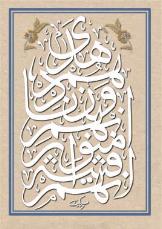 إنهم فتية آمنوا بربهم وزدناهم هدى